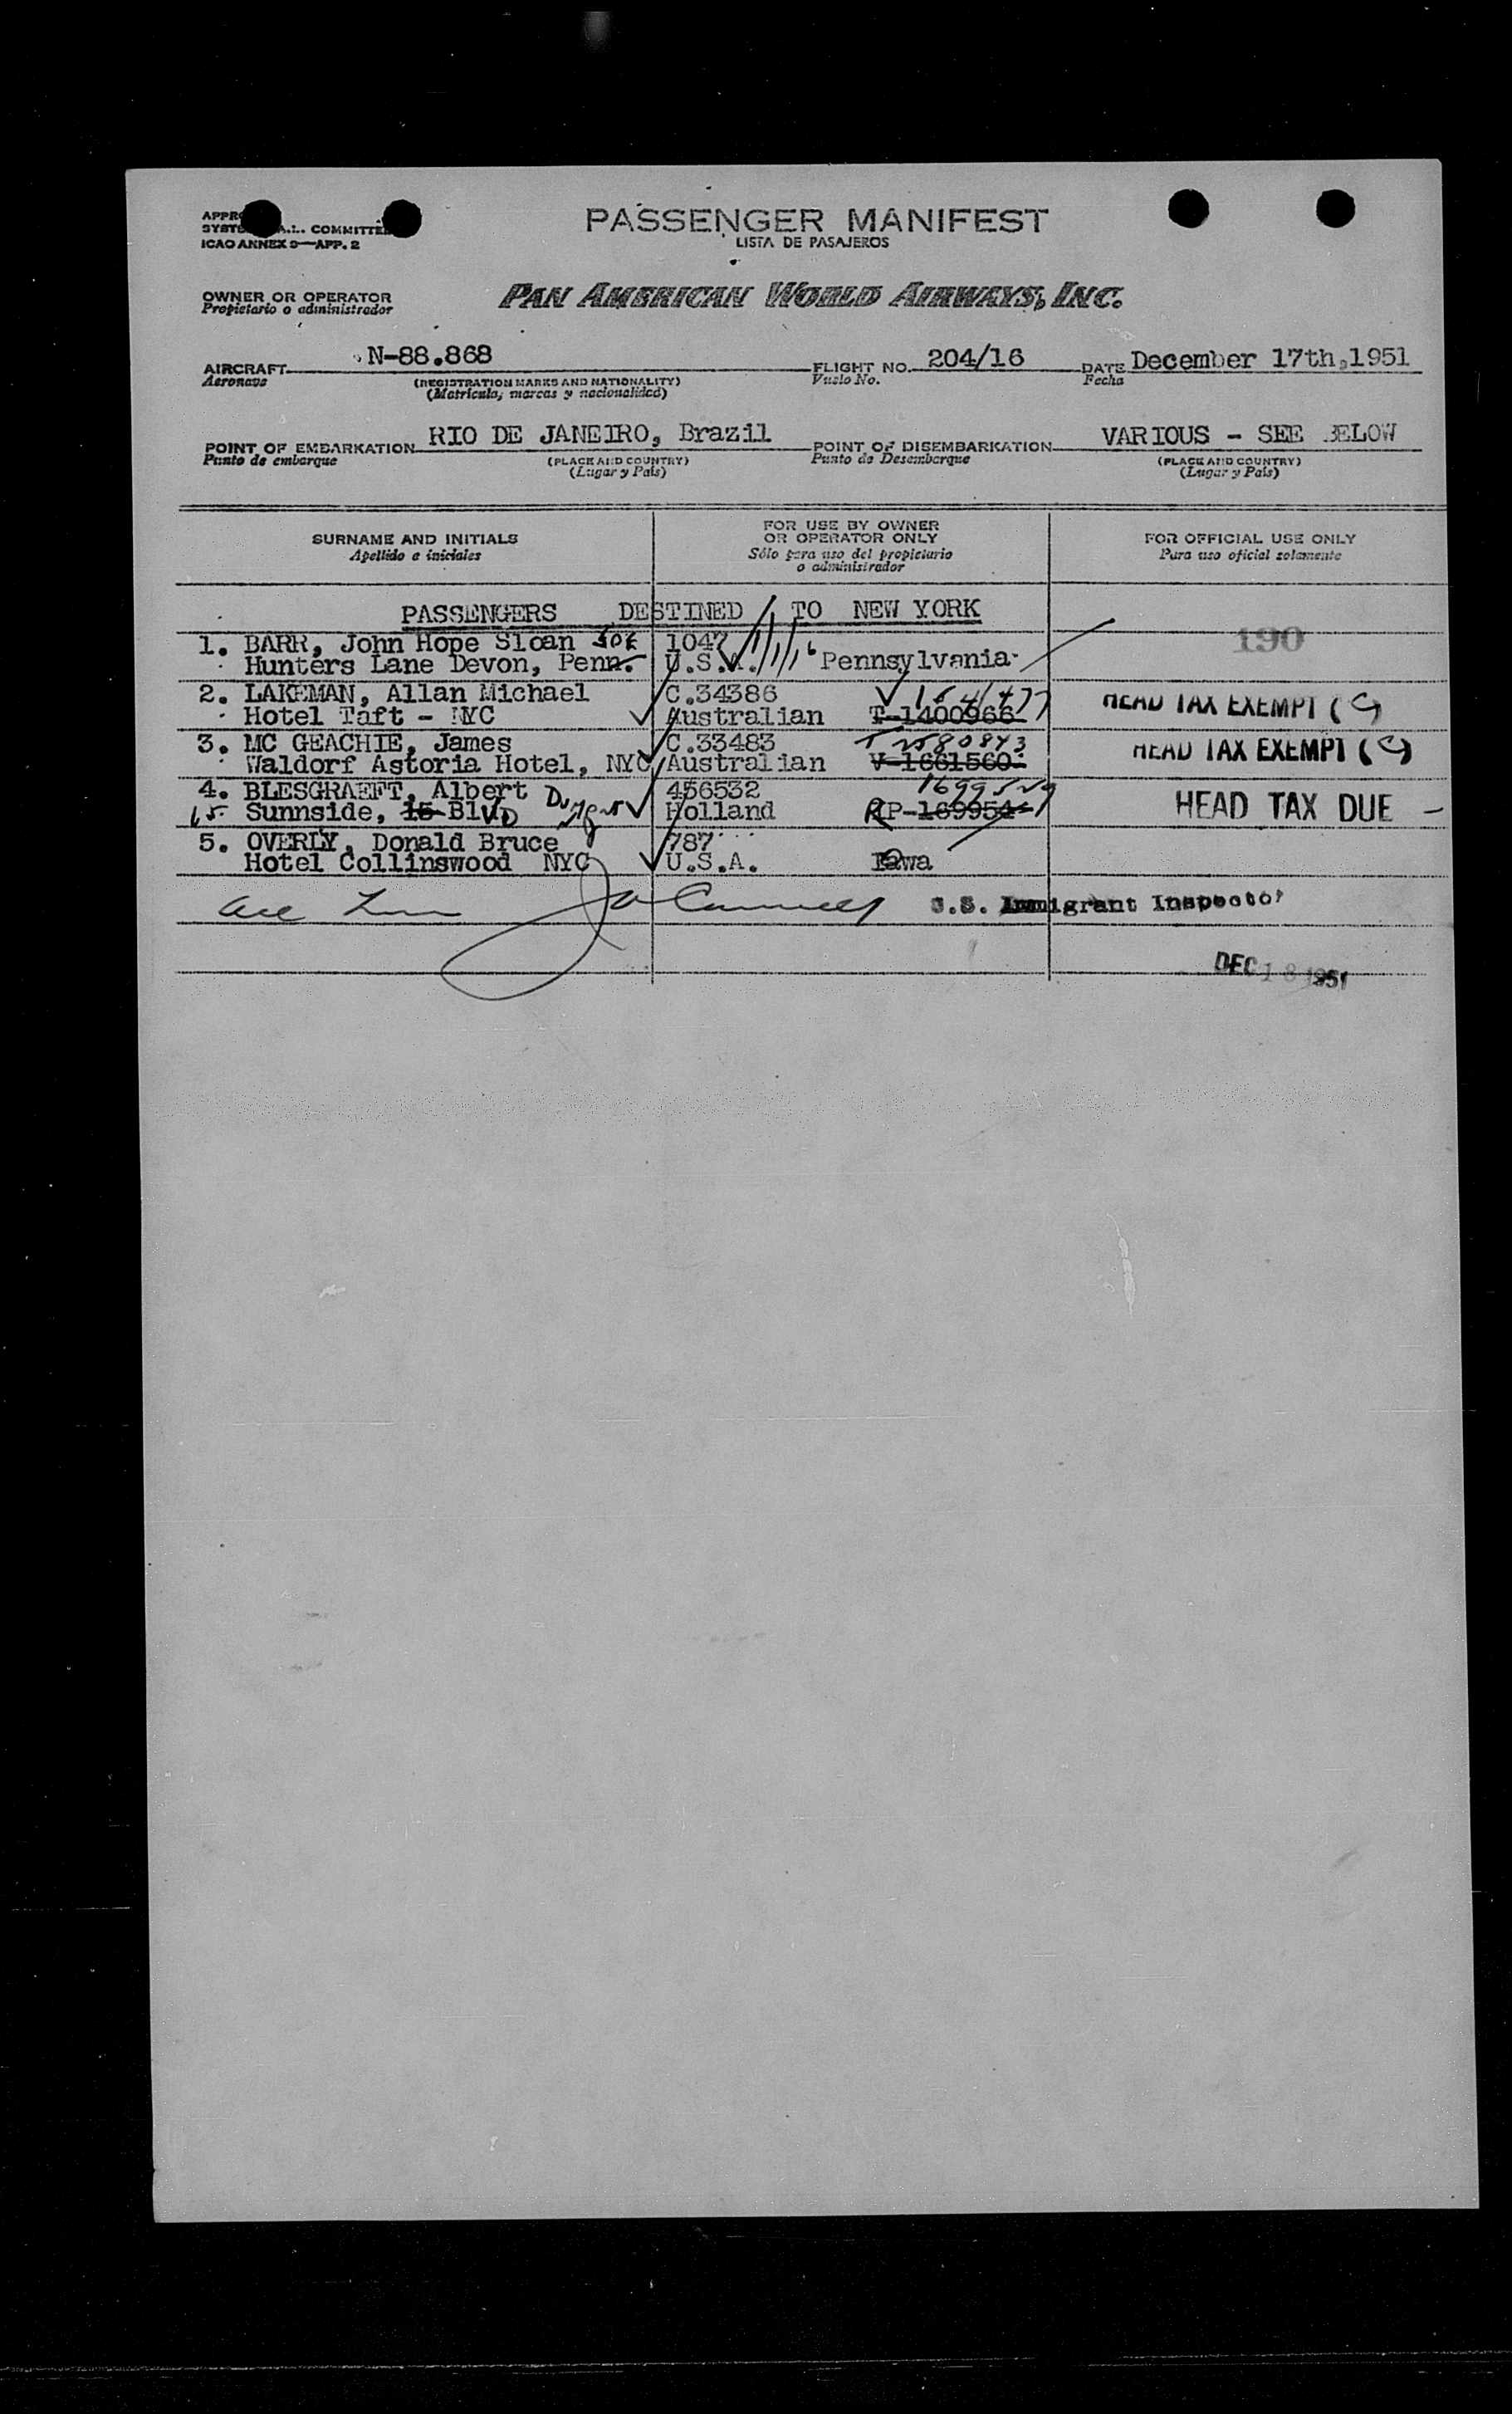 PASSENGER MANIFEST
LISTA DE PASAJEROS
A.L. COMMITTEE
ICAO ANNEX 9—APP. 2
OWNER OR OPERATOR
Propietario o administrador
PAN AMERICAN WORLD AIRWAYS, INC.
AIRCRAFT N-88.868 FLIGHT NO. 204/16 DATE December 17th,1951
Aeronave (REGISTRATION MARKS AND NATIONALITY) Vuelo No. Fecha
(Matricula, marcas y nacionalidad)
POINT OF EMBARKATION RIO DE JANEIRO, Brazil POINT OF DISEMBARKATION VARIOUS - SEE BELOW
Punto de embarque (PLACE AND COUNTRY) Punto de Desembarque (PLACE AND COUNTRY)
(Lugar y País) (Lugar y País)
SURNAME AND INITIALS FOR USE BY OWNER OR OPERATOR ONLY FOR OFFICIAL USE ONLY
Apellido e iniciales Sólo para uso del propietario o administrador Para uso oficial solamente
PASSENGERS DESTINED TO NEW YORK
1. BARR, John Hope Sloan 1047 190
Hunters Lane Devon, Penn. U.S.A. Pennsylvania
2. LAKEMAN, Allan Michael C.34386
Hotel Taft - NYC Australian T-1400966 HEAD TAX EXEMPT
3. MC GEACHIE, James C.33483
Waldorf Astoria Hotel, NYC Australian V-1661560 HEAD TAX EXEMPT
4. BLESGRAEFT, Albert 456532
15 Sunnside, 15 Blvd Holland RP-169954 HEAD TAX DUE
5. OVERLY, Donald Bruce 787
Hotel Collinswood NYC U.S.A. Iowa
U.S. Immigrant Inspector
DEC 18 1951